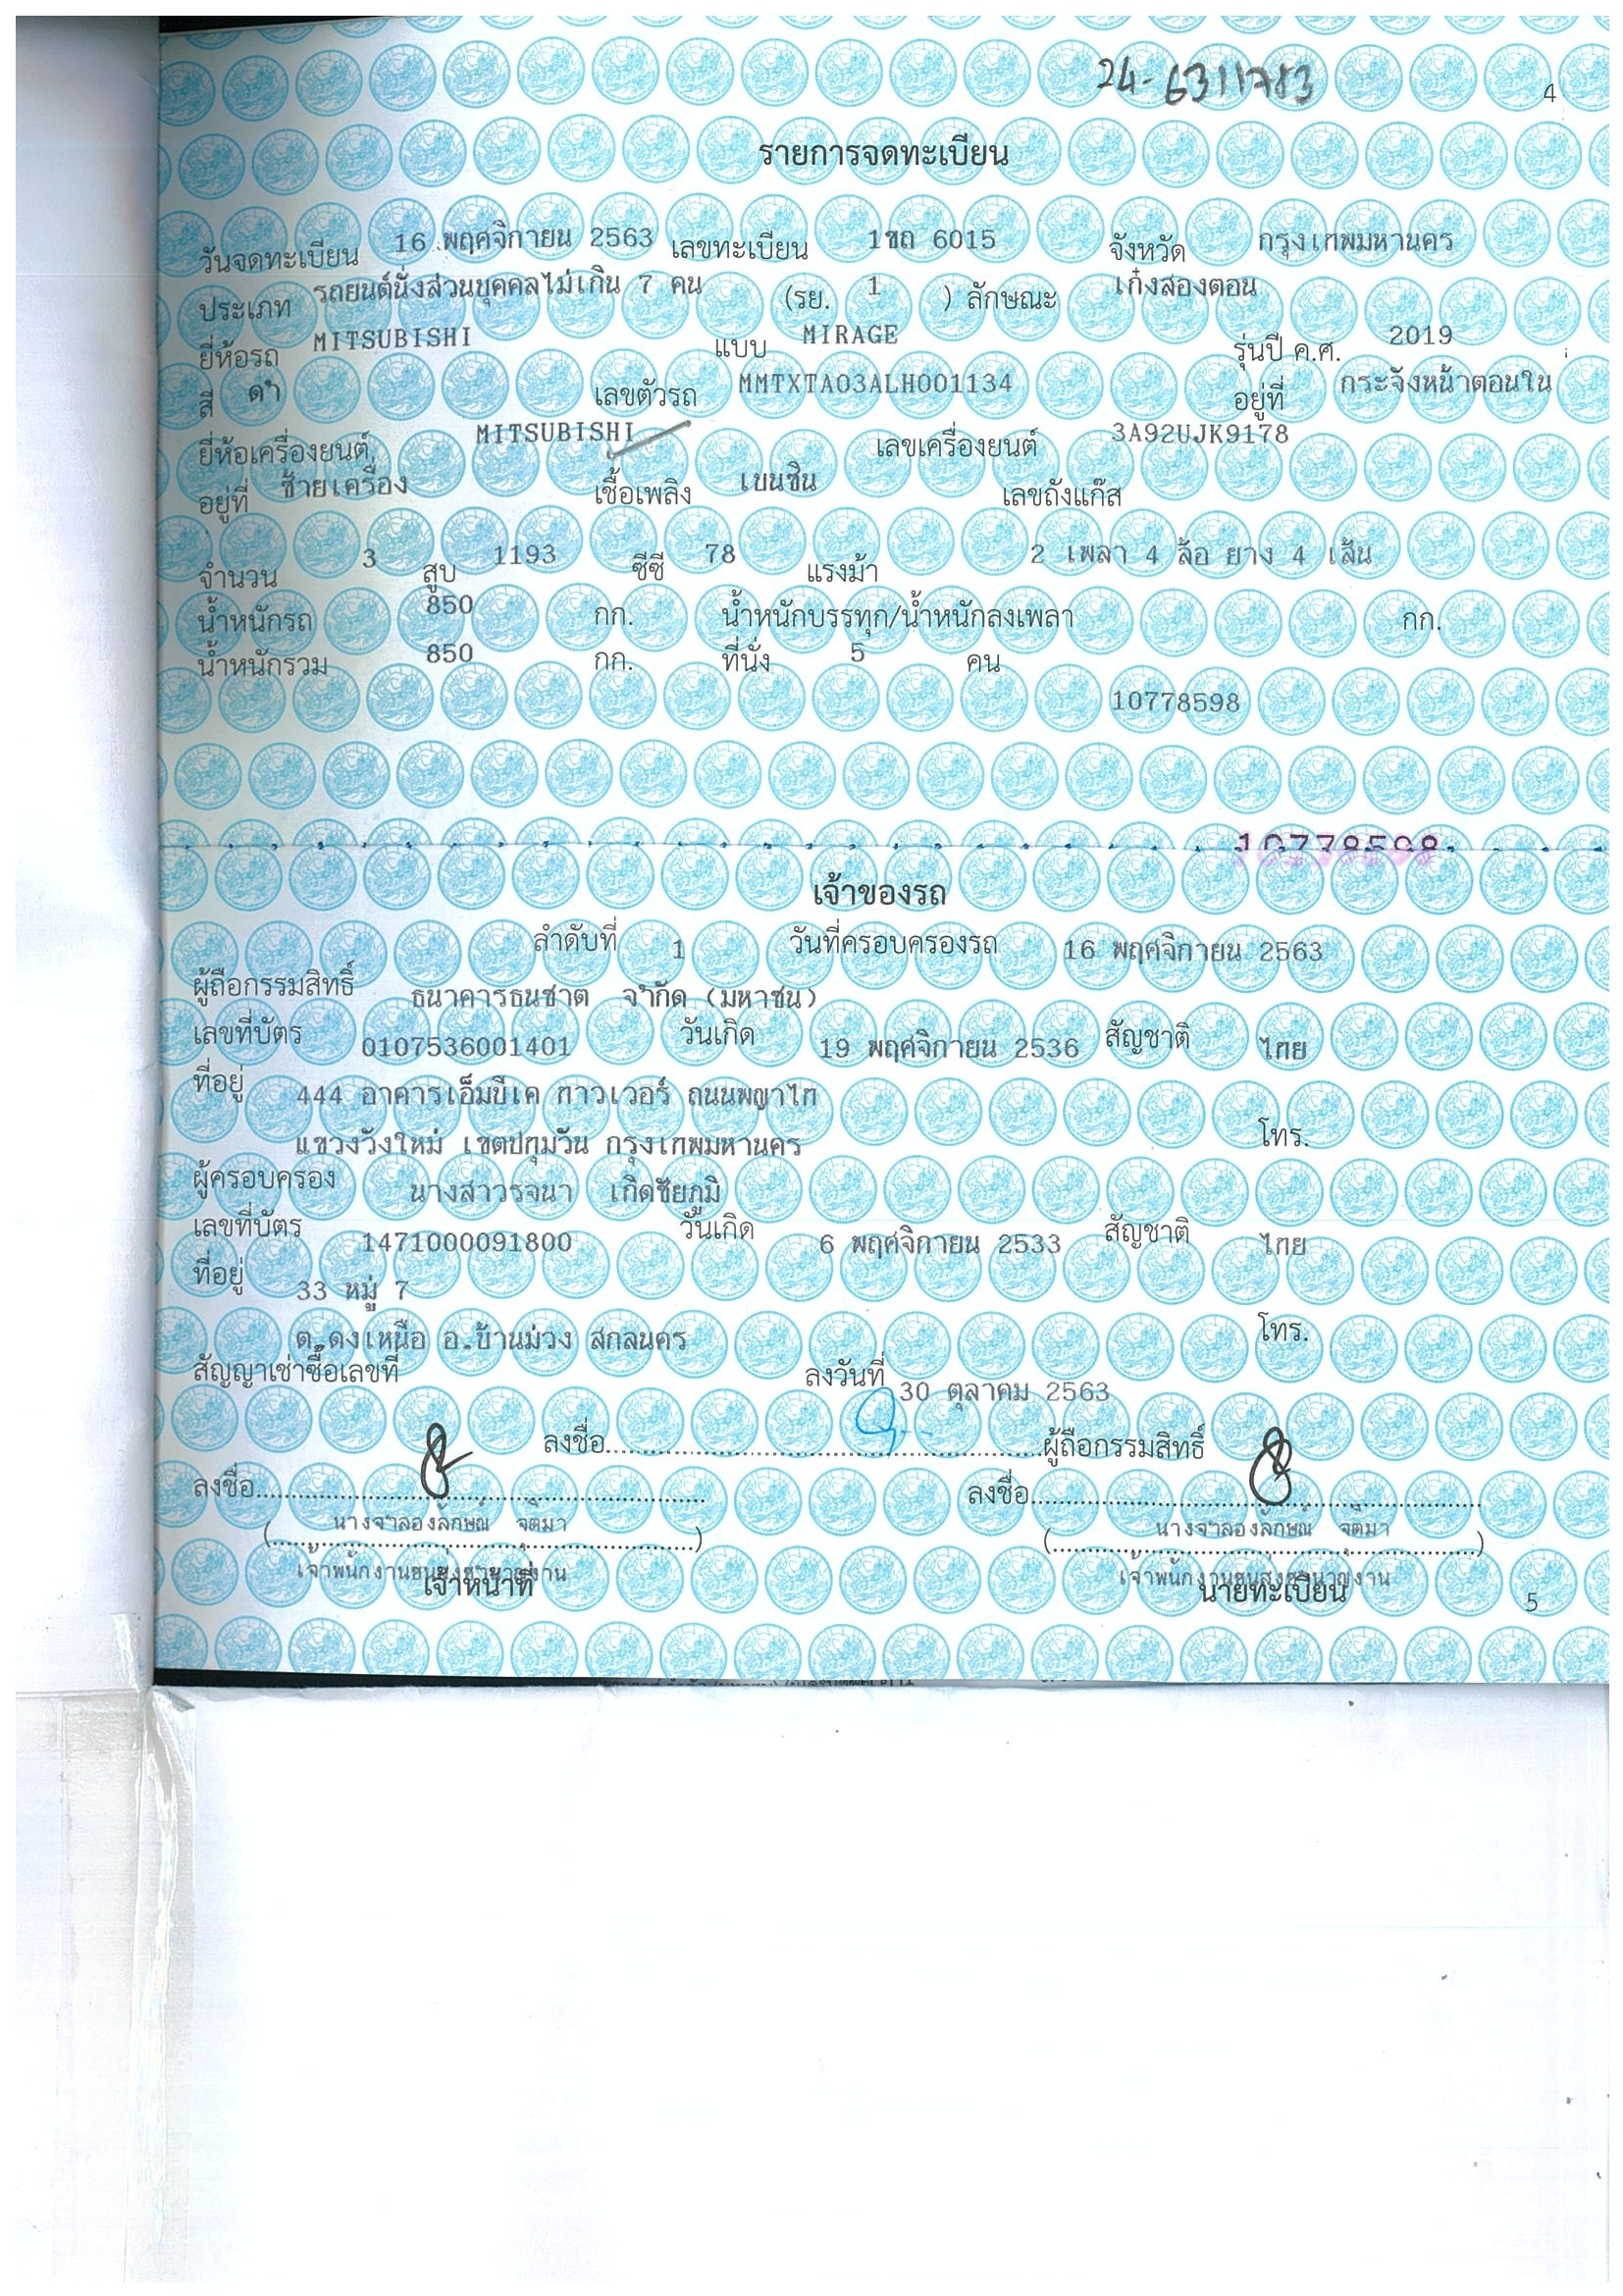 24-6311783
4
รายการจดทะเบียน
วันจดทะเบียน 16 พฤศจิกายน 2563 เลขทะเบียน 1ขถ 6015 จังหวัด กรุงเทพมหานคร
ประเภท รถยนต์นั่งส่วนบุคคลไม่เกิน 7 คน (รย. 1 ) ลักษณะ เก๋งสองตอน
ยี่ห้อรถ MITSUBISHI แบบ MIRAGE รุ่นปี ค.ศ. 2019
สี ดำ เลขตัวรถ MMTXTA03ALH001134 อยู่ที่ กระจังหน้าตอนใน
ยี่ห้อเครื่องยนต์ MITSUBISHI เลขเครื่องยนต์ 3A92UJK9178
อยู่ที่ ซ้ายเครื่อง เชื้อเพลิง เบนซิน เลขถังแก๊ส
จำนวน 3 สูบ 1193 ซีซี 78 แรงม้า 2 เพลา 4 ล้อ ยาง 4 เส้น
น้ำหนักรถ 850 กก. น้ำหนักบรรทุก/น้ำหนักลงเพลา กก.
น้ำหนักรวม 850 กก. ที่นั่ง 5 คน
10778598
10778598
เจ้าของรถ
ลำดับที่ 1 วันที่ครอบครองรถ 16 พฤศจิกายน 2563
ผู้ถือกรรมสิทธิ์ ธนาคารธนชาต จำกัด (มหาชน)
เลขที่บัตร 0107536001401 วันเกิด 19 พฤศจิกายน 2536 สัญชาติ ไทย
ที่อยู่ 444 อาคารเอ็มบีเค ทาวเวอร์ ถนนพญาไท
แขวงวังใหม่ เขตปทุมวัน กรุงเทพมหานคร โทร.
ผู้ครอบครอง นางสาวรจนา เกิดชัยภูมิ
เลขที่บัตร 1471000091800 วันเกิด 6 พฤศจิกายน 2533 สัญชาติ ไทย
ที่อยู่ 33 หมู่ 7
ต.ดงเหนือ อ.บ้านม่วง สกลนคร โทร.
สัญญาเช่าซื้อเลขที่ ลงวันที่ 30 ตุลาคม 2563
ลงชื่อ ผู้ถือกรรมสิทธิ์
ลงชื่อ ลงชื่อ
(นางจำลองลักษณ์ จุติมา) (นางจำลองลักษณ์ จุติมา)
เจ้าพนักงานขนส่งชำนาญงาน เจ้าพนักงานขนส่งชำนาญงาน
เจ้าหน้าที่ นายทะเบียน
5